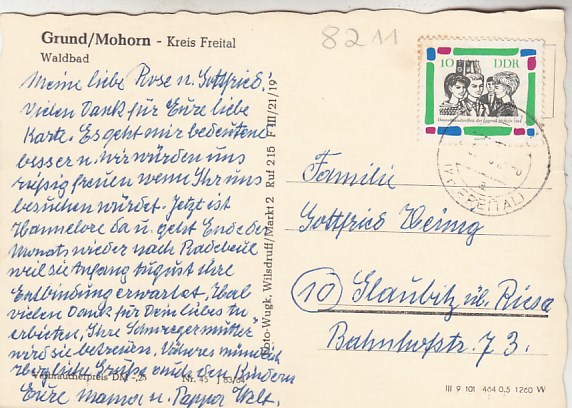 Grund/Mohorn - Kreis Freital
Waldbad
8211
10 DDR
Meine liebe Rose u. Gottfried.
Vielen Dank für Eure liebe
Karte. Es geht mir bedeutend
besser u. wir würden uns
riesig freuen wenn Ihr uns
besuchen würdet. Jetzt ist
Hannelore da u. geht Ende des
Monats wieder nach Radebeul
weil sie Anfang August ihre
Entbindung erwartet.
vielen Dank für Dein liebes
erbieten, Ihre Schwiegermutter
wird sie betreuen. Näheres mündlich
herzliche Grüße auch den Kindern
Eure Mama u. Pappa Walt.
Verbraucherpreis DM -,25 Nr. 45 J 83/64
Foto-Wugk, Wilsdruff/Markt 2 Ruf 215 F III/21/19
FREITAL
Familie
Gottfried
(10) Glaubitz üb. Riesa
Bahnhofstr. 73.
III 9 101 464 0,5 1260 W